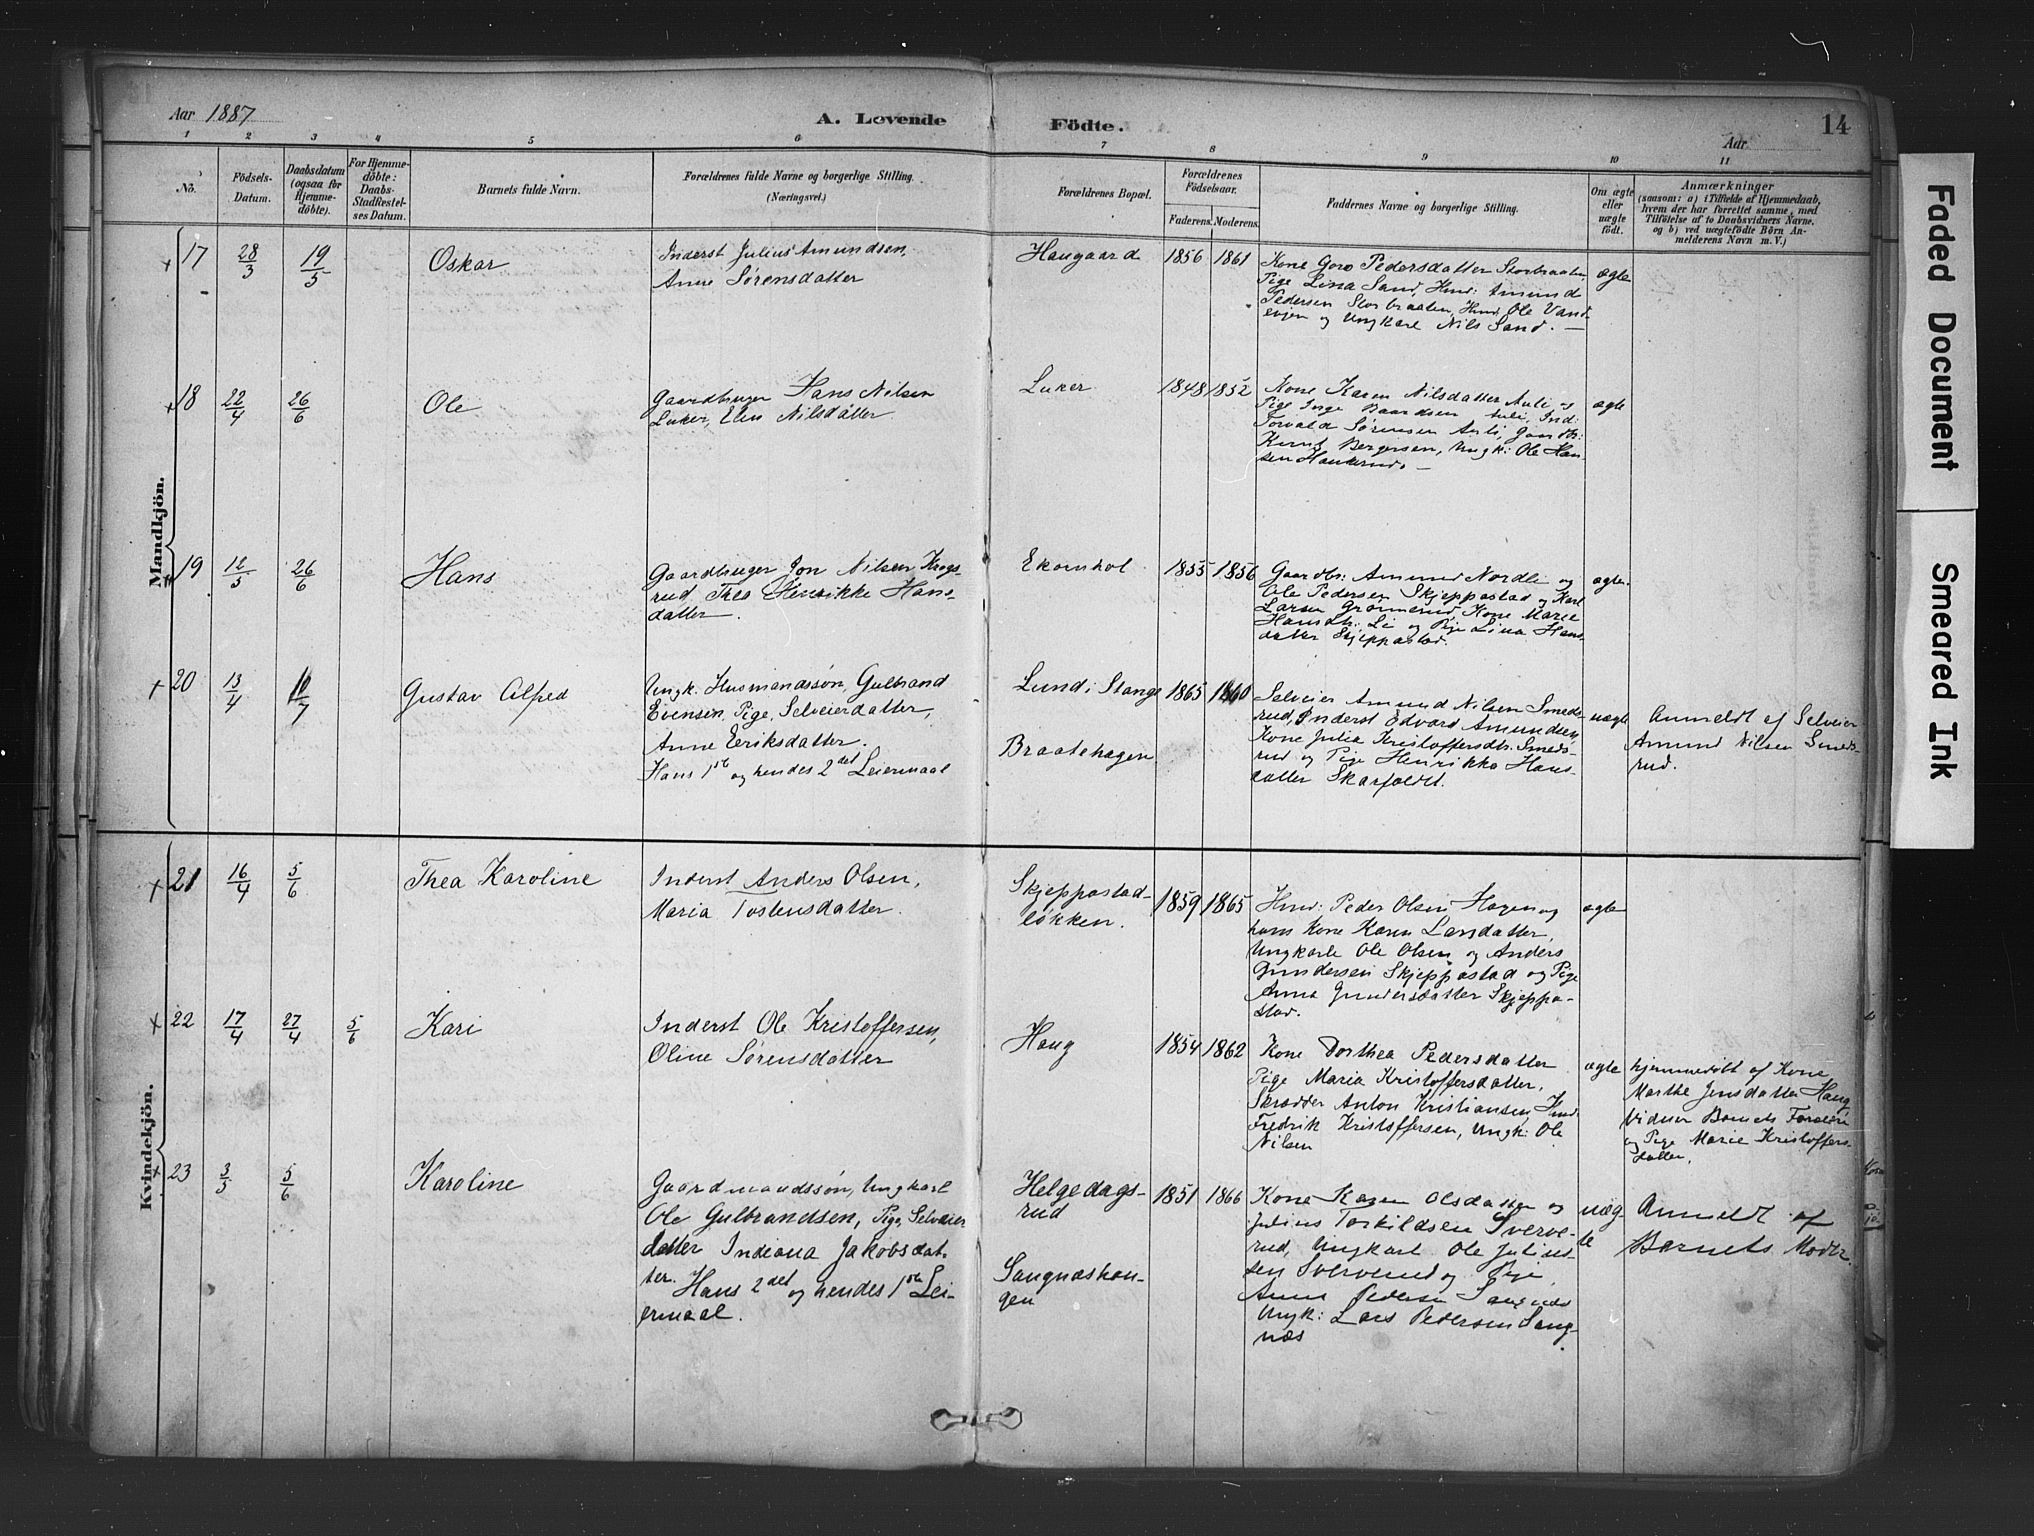 Aar 1887
A. Levende Födte.
14
Aar
1 2 3 4 5 6 7 8 9 10 11
No.
Födsels-Datum.
Daabsdatum (ogsaa for Hjemme-döbte).
For Hjemme-döbte: Daabs-Stadfæstel-ses Datum.
Barnets fulde Navn.
Forældrenes fulde Navne og borgerlige Stilling. (Næringsvei.)
Forældrenes Bopæl.
Forældrenes Födselsaar.
Faderens. Moderens.
Faddernes Navne og borgerlige Stilling.
Om ægte eller uægte födt.
Anmærkninger
(saasom: a) i Tilfælde af Hjemmedaab,
hvem der har forrettet samme, med
Tilföielse af to Daabsvidners Navne.
og b) ved uægtefödte Börn An-
melderens Navn m. V.)
Mandkjön.
17 28/3 19/5 Oskar
Inderst Julius Amundsen,
Anne Sørensdatter
Haugaard 1856 1861
Kone Goro Pedersdatter Storbraaten,
Pige Lina Sand, Husm: Amund
Pedersen Storbraaten, Husm: Ole Vand-
evjen og Ungkarl Nils Sand. —
ægte
18 22/4 26/6 Ole
Gaardbruger Hans Nilsen
Luker, Elen Nilsdatter
Luker 1848 1852
Kone Karen Nilsdatter Auli og
Pige Inge Baardsen Auli, Ind:
Torvald Sørensen Auli, Gaardbr:
Knut Bergersen, Ungk: Ole Han-
sen Haukerud. —
ægte
19 12/5 26/6 Hans
Gaardbruger Jon Nilsen Krogs-
rud, Thea Henrikke Hans-
datter.
Ekornhol 1855 1856
Gaardbr: Amund Nordli og
Ole Pedersen Skjeppastad og Karl
Larsen Grønnerud, Kone Marie
Hansdtr: Li og Pige Lina Hans-
datter Skjeppastad.
ægte.
20 13/4 10/7 Gustav Alfred
Ungk. Husmandssøn, Gulbrand
Evensen, Pige, Selveierdatter,
Anne Eriksdatter.
Hans 1ste og hendes 2det Leiermaal
Lund i Stange
Braatehagen
1865 1860
Selveier Amund Nilsen Smeds-
rud, Inderst Edvard Amundsen,
Kone Julia Kristoffersdtr. Smeds-
rud og Pige Henrikke Hans-
datter Skarfoldt.
uægte
Anmeldt af Selveier
Amund Nilsen Smeds-
rud.
Kvindekjön.
21 16/4 5/6 Thea Karoline
Inderst Anders Olsen,
Maria Tostensdatter.
Skjeppastad-
løkken.
1859 1865
Husm: Peder Olsen Hagen og
hans Kone Karen Larsdatter,
Ungkarle Ole Olsen og Anders
Gundersen Skjeppastad og Pige
Anna Gundersdatter Skjeppa-
stad.
ægte
22 17/4 27/4 5/6 Kari
Inderst Ole Kristoffersen,
Oline Sørensdatter
Haug 1854 1862
Kone Dorthea Pedersdatter
Pige Maria Kristoffersdatter,
Skrædder Anton Kristiansen, Husm:
Fredrik Kristoffersen, Ungk: Ole
Nilsen
ægte
hjemmedøbt af Kone
Marthe Jensdatter Haug
Vidner Barnets Forældre
og Pige Marie Kristoffers-
datter.
23 3/5 5/6 Karoline
Gaardmandssøn, Ungkarl
Ole Gulbrandsen, Pige, Selveier
datter Indiana Jakobsdat-
ter. Hans 2det og hendes 1ste Lei-
ermaal.
Helgedags-
rud
Sangnæshau-
gen
1851 1866
Kone Karen Olsdatter og
Julius Torkildsen Sverve-
rud, Ungkarl Ole Julius-
sen Sververud og Pige
Anne Pedersen Sangnæs
Ungk: Lars Pedersen Sang-
næs
uæg
te
Anmeldt af
Barnets Moder.
Faded Document
Smeared Ink